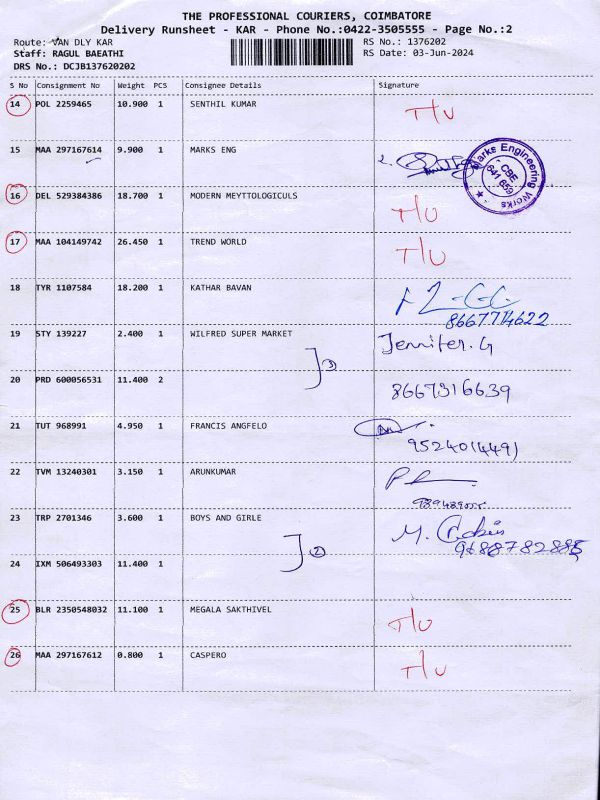 THE PROFESSIONAL COURIERS, COIMBATORE
Delivery Runsheet - KAR - Phone No.:0422-3505555 - Page No.:2
Route: VAN DLY KAR
RS No.: 1376202
Staff: RAGUL BAEATHI
RS Date: 03-Jun-2024
DRS No.: DCJB137620202
S No Consignment No Weight PCS Consignee Details Signature
14 POL 2259465 10.900 1 SENTHIL KUMAR T/U
15 MAA 297167614 9.900 1 MARKS ENG
Marks Engineering Works
CBE
641 659
16 DEL 529384386 18.700 1 MODERN MEYTTOLOGICULS T/U
17 MAA 104149742 26.450 1 TREND WORLD T/U
18 TYR 1107584 18.200 1 KATHAR BAVAN
8667714622
19 STY 139227 2.400 1 WILFRED SUPER MARKET Jennifer. G
③
20 PRD 600056531 11.400 2 8667316639
21 TUT 968991 4.950 1 FRANCIS ANGFELO
9524014491
22 TVM 13240301 3.150 1 ARUNKUMAR
23 TRP 2701346 3.600 1 BOYS AND GIRLE M.
②
24 IXM 506493303 11.400 1
25 BLR 2350548032 11.100 1 MEGALA SAKTHIVEL T/U
26 MAA 297167612 0.800 1 CASPERO T/U